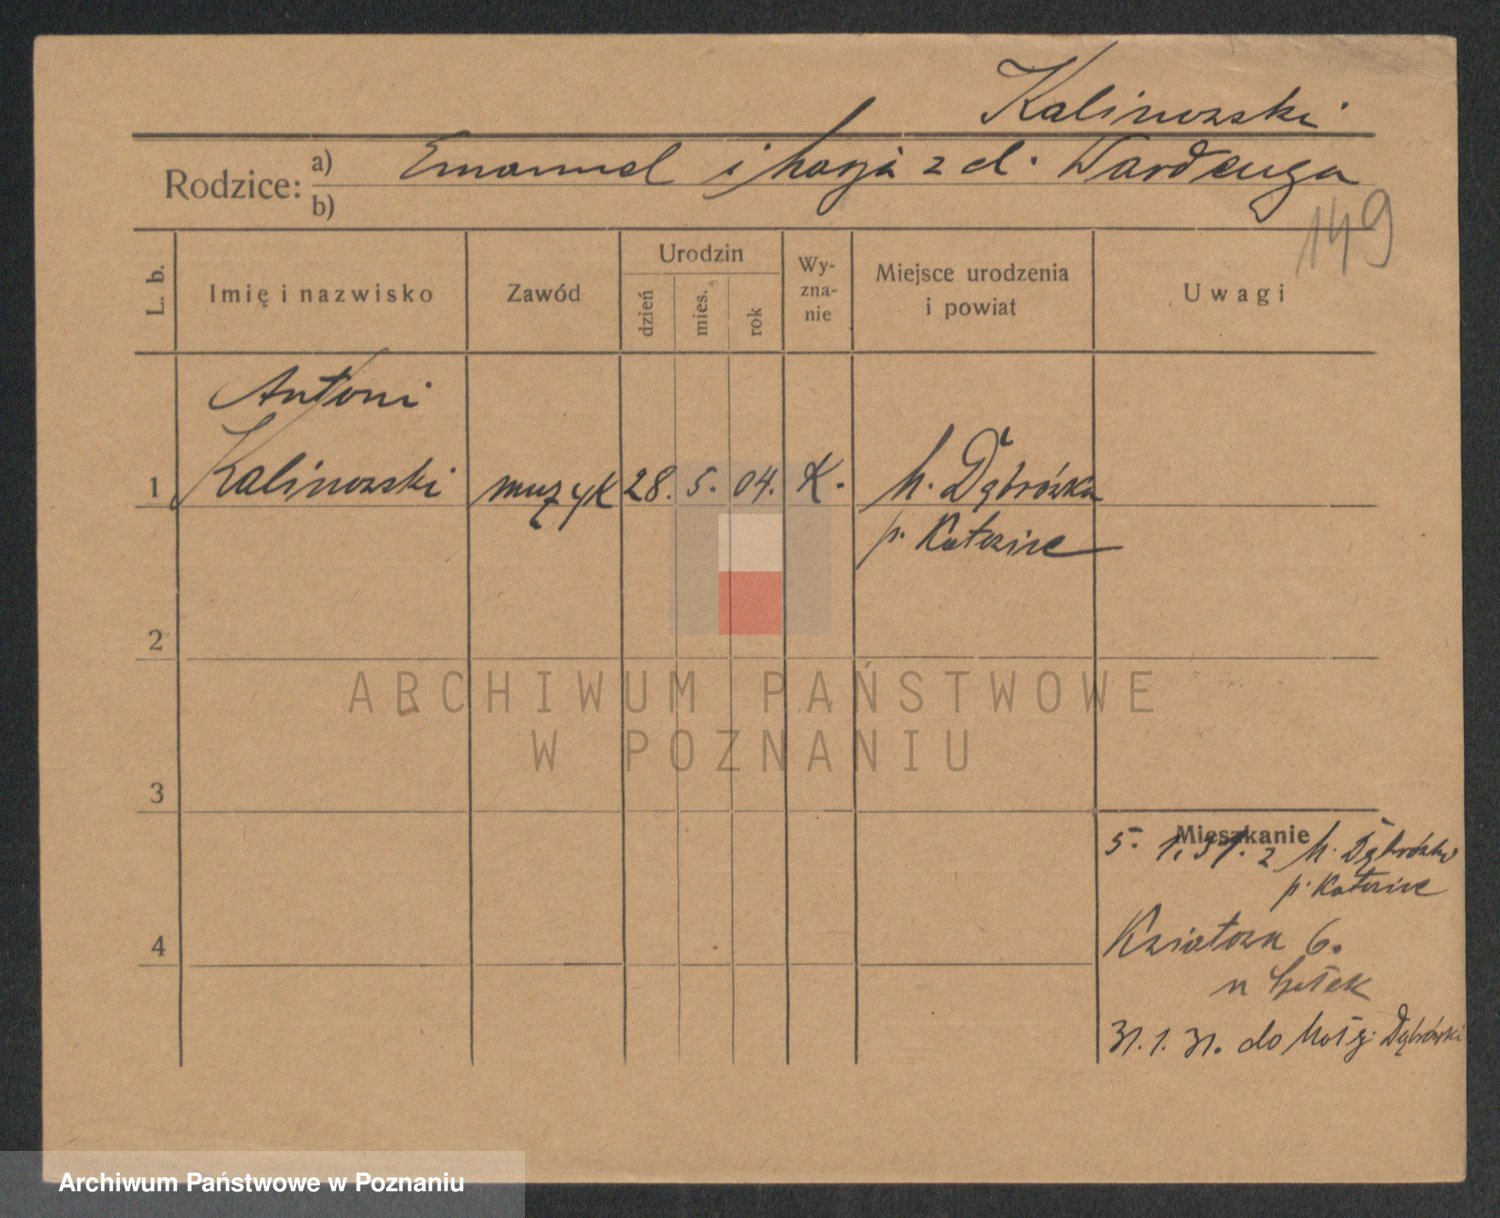 Kalinowski
Rodzice: a) Emanuel i Marja z d. Wardenga
b)
149
L. b.
Imię i nazwisko
Zawód
Urodzin
dzień
mies.
rok
Wy-
zna-
nie
Miejsce urodzenia
i powiat
Uwagi
Antoni
1 Kalinowski muzyk 28. 5. 04. K. M. Dąbrówka
p. Katowice
2
ARCHIWUM PAŃSTWOWE
W POZNANIU
3
Mieszkanie
5. 1. 31. z M. Dąbrówka
p. Katowice
4
Kwiatowa 6.
31. 1. 31. do Dąbrówki
Archiwum Państwowe w Poznaniu